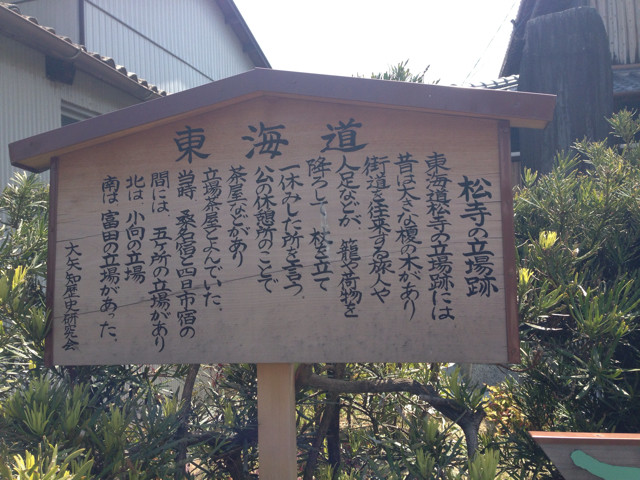 東海道
松寺の立場跡
東海道松寺の立場跡には
昔は大きな榎の木があり
街道を往来する旅人や
人足などが、籠や荷物を
降ろして、杖を立て
一休みした所を言う、
公の休憩所のことで
茶屋などがあり
立場茶屋とよんでいた。
当時、桑名宿と四日市宿の
間には、五ケ所の立場があり
北は、小向の立場
南は、富田の立場があった。
大矢知歴史研究会